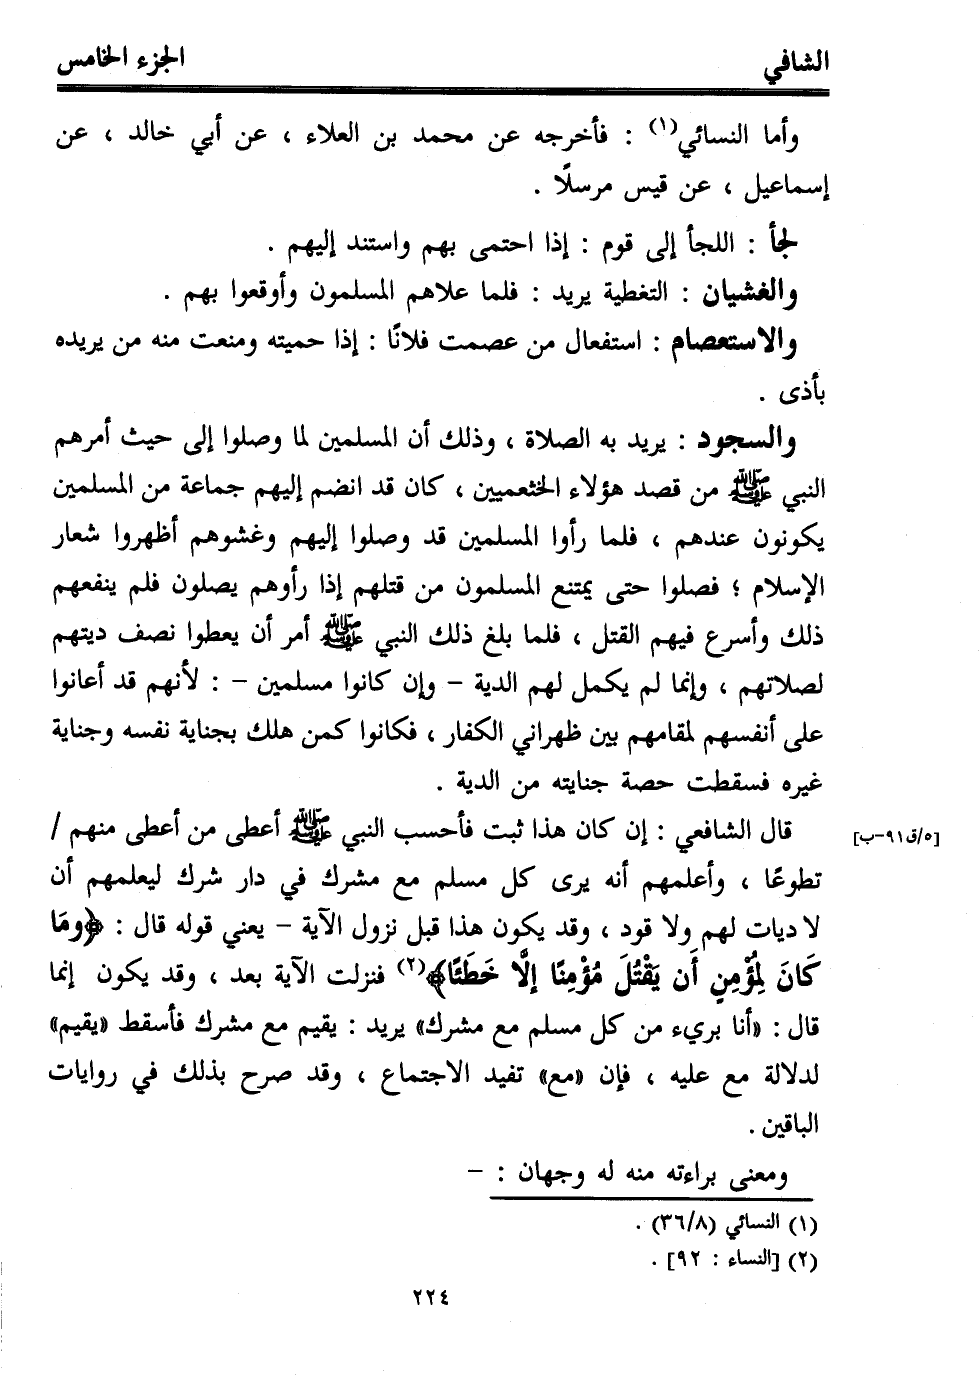 الشافي
الجزء الخامس
وأما النسائي(١) : فأخرجه عن محمد بن العلاء ، عن أبي خالد ، عن
إسماعيل ، عن قيس مرسلًا .
لجأ : اللجأ إلى قوم : إذا احتمى بهم واستند إليهم .
والغشيان : التغطية يريد : فلما علاهم المسلمون وأوقعوا بهم .
والاستعصام : استفعال من عصمت فلانًا : إذا حميته ومنعت منه من يريده
بأذى .
والسجود : يريد به الصلاة ، وذلك أن المسلمين لما وصلوا إلى حيث أمرهم
النبي ﷺ من قصد هؤلاء الخثعميين ، كان قد انضم إليهم جماعة من المسلمين
يكونون عندهم ، فلما رأوا المسلمين قد وصلوا إليهم وغشوهم أظهروا شعار
الإسلام ؛ فصلوا حتى يمتنع المسلمون من قتلهم إذا رأوهم يصلون فلم ينفعهم
ذلك وأسرع فيهم القتل ، فلما بلغ ذلك النبي ﷺ أمر أن يعطوا نصف ديتهم
لصلاتهم ، وإنما لم يكمل لهم الدية – وإن كانوا مسلمين – : لأنهم قد أعانوا
على أنفسهم لمقامهم بين ظهراني الكفار ، فكانوا كمن هلك بجناية نفسه وجناية
غيره فسقطت حصة جنايته من الدية .
قال الشافعي : إن كان هذا ثبت فأحسب النبي ﷺ أعطى من أعطى منهم /
[٥/ق٩١-ب]
تطوعًا ، وأعلمهم أنه يرى كل مسلم مع مشرك في دار شرك ليعلمهم أن
لا ديات لهم ولا قود ، وقد يكون هذا قبل نزول الآية – يعني قوله قال : ﴿ومَا
كَانَ لِمُؤْمِنٍ أَن يَقْتُلَ مُؤْمِنًا إلَّا خَطَئًا﴾(٢) فنزلت الآية بعد ، وقد يكون إنما
قال : «أنا بريء من كل مسلم مع مشرك» يريد : يقيم مع مشرك فأسقط «يقيم»
لدلالة مع عليه ، فإن «مع» تفيد الاجتماع ، وقد صرح بذلك في روايات
الباقين .
ومعنى براءته منه له وجهان : –
(١) النسائي (٣٦/٨) .
(٢) [النساء : ٩٢] .
٢٢٤